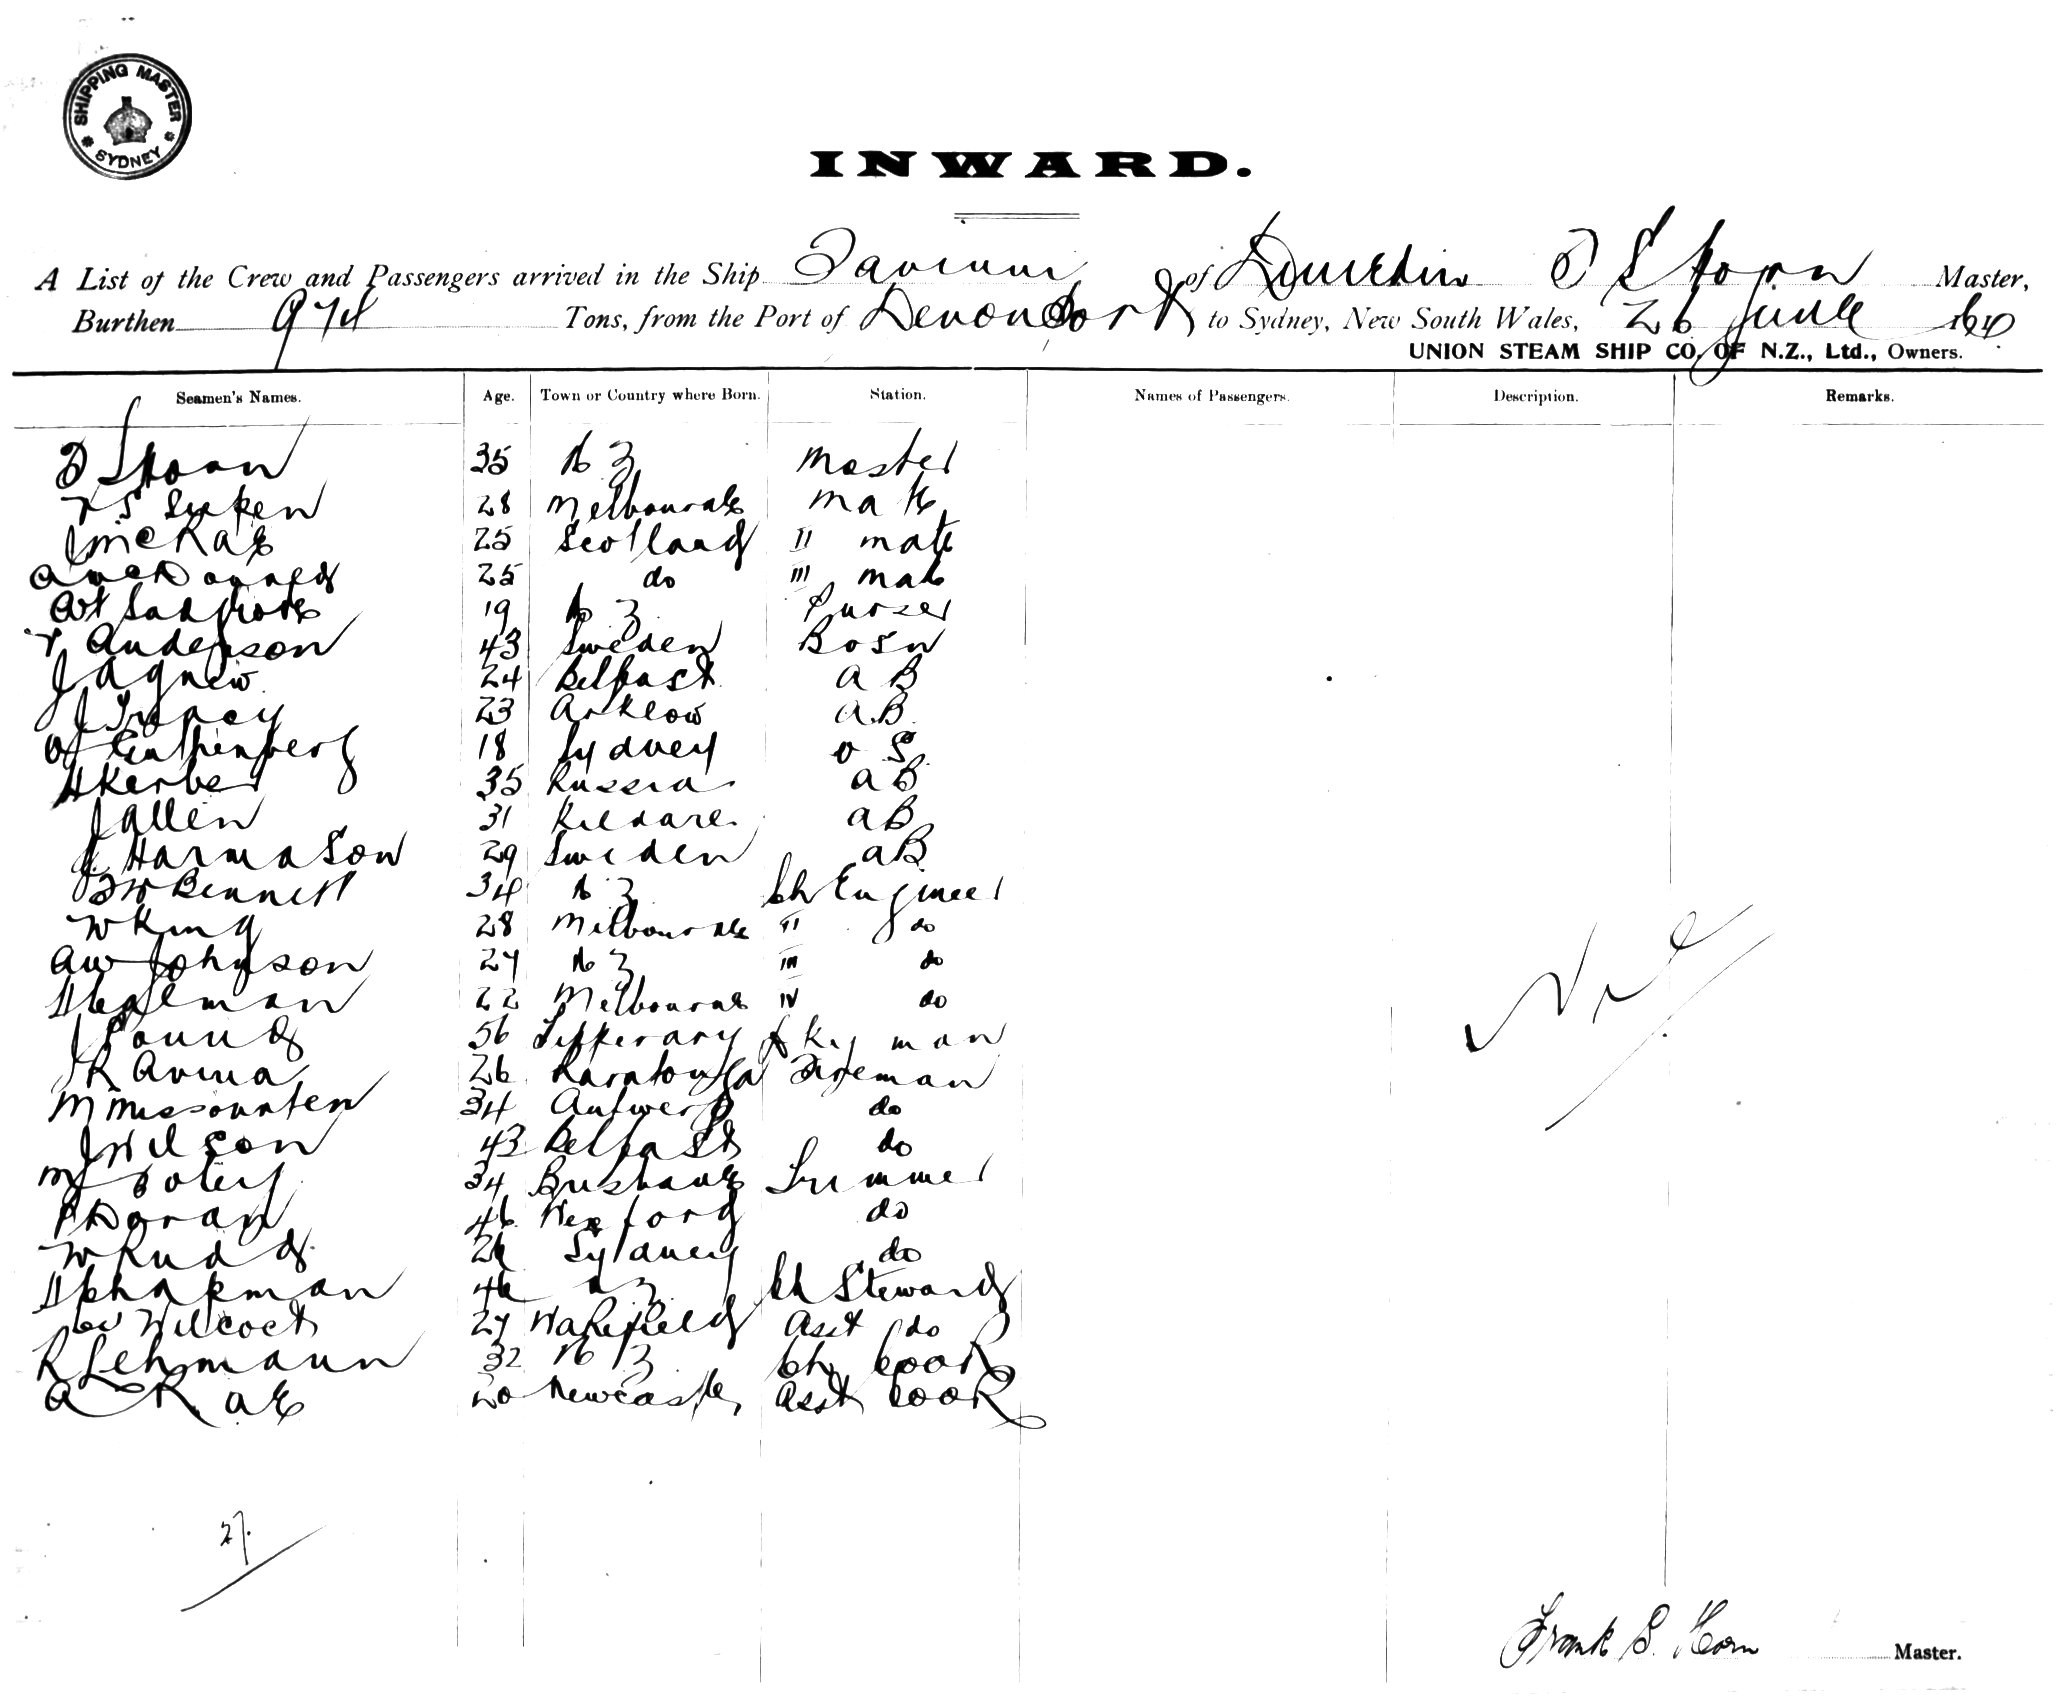 SHIPPING MASTER
SYDNEY
INWARD.
A List of the Crew and Passengers arrived in the Ship Taviuni of Dunedin F S Horn Master,
Burthen Tons, from the Port of Devonport to Sydney, New South Wales, 26 June
UNION STEAM SHIP CO. OF N.Z., Ltd., Owners.
Seamen's Names. Age. Town or Country where Born. Station. Names of Passengers. Description. Remarks.
F S Horn 35 N Z Master
28 Melbourne Mate
J McRae 25 Scotland II mate
A McDonald 25 do III mate
19 N Z Purser
Anderson 43 Sweden Bosn
J Agnew 24 Belfast A B
J 23 Arklow A B
18 Sydney O S
H Kerber 35 Russia A B
J Allen 31 Kildare A B
J Harmason 29 Sweden A B
W Bennett 34 N Z Ch Engineer
W King 28 Melbourne II do
A W Johnson 27 N Z III do
22 Melbourne IV do
J Pound 56 Tipperary Dkyman
26 Raratonga Fireman
M 34 Antwerp do
J Wilson 43 Belfast do
M 34 Brisbane Trimmer
P Doran 46 Wexford do
W Rudd Sydney do
H Chapman N Z Ch Steward
Wilcock 27 Wakefield Asst do
R Lehmann 32 N Z Ch Cook
A Rae 20 Newcastle Asst Cook
Nil
27.
Frank S. Horn Master.